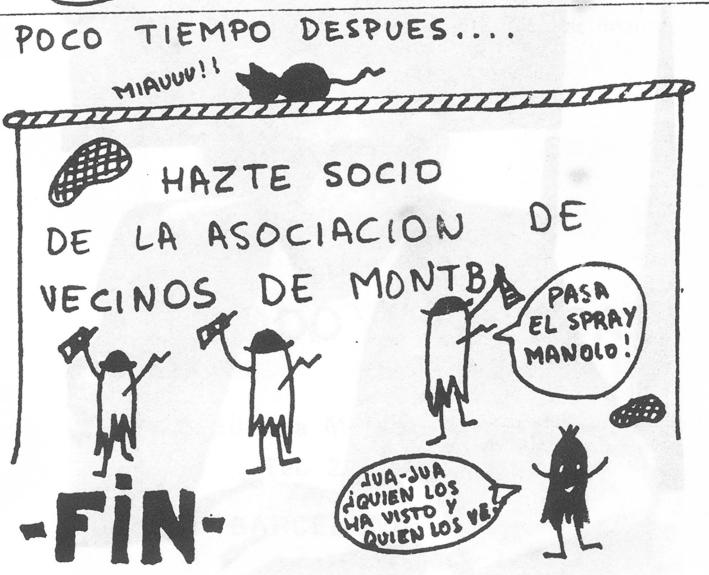 POCO TIEMPO DESPUES....
MIAUUU!!
HAZTE SOCIO
DE LA ASOCIACION DE
VECINOS DE MONTB
PASA
EL SPRAY
MANOLO!
JUA-JUA
¡QUIEN LOS
HA VISTO Y
QUIEN LOS VE!
-FIN-